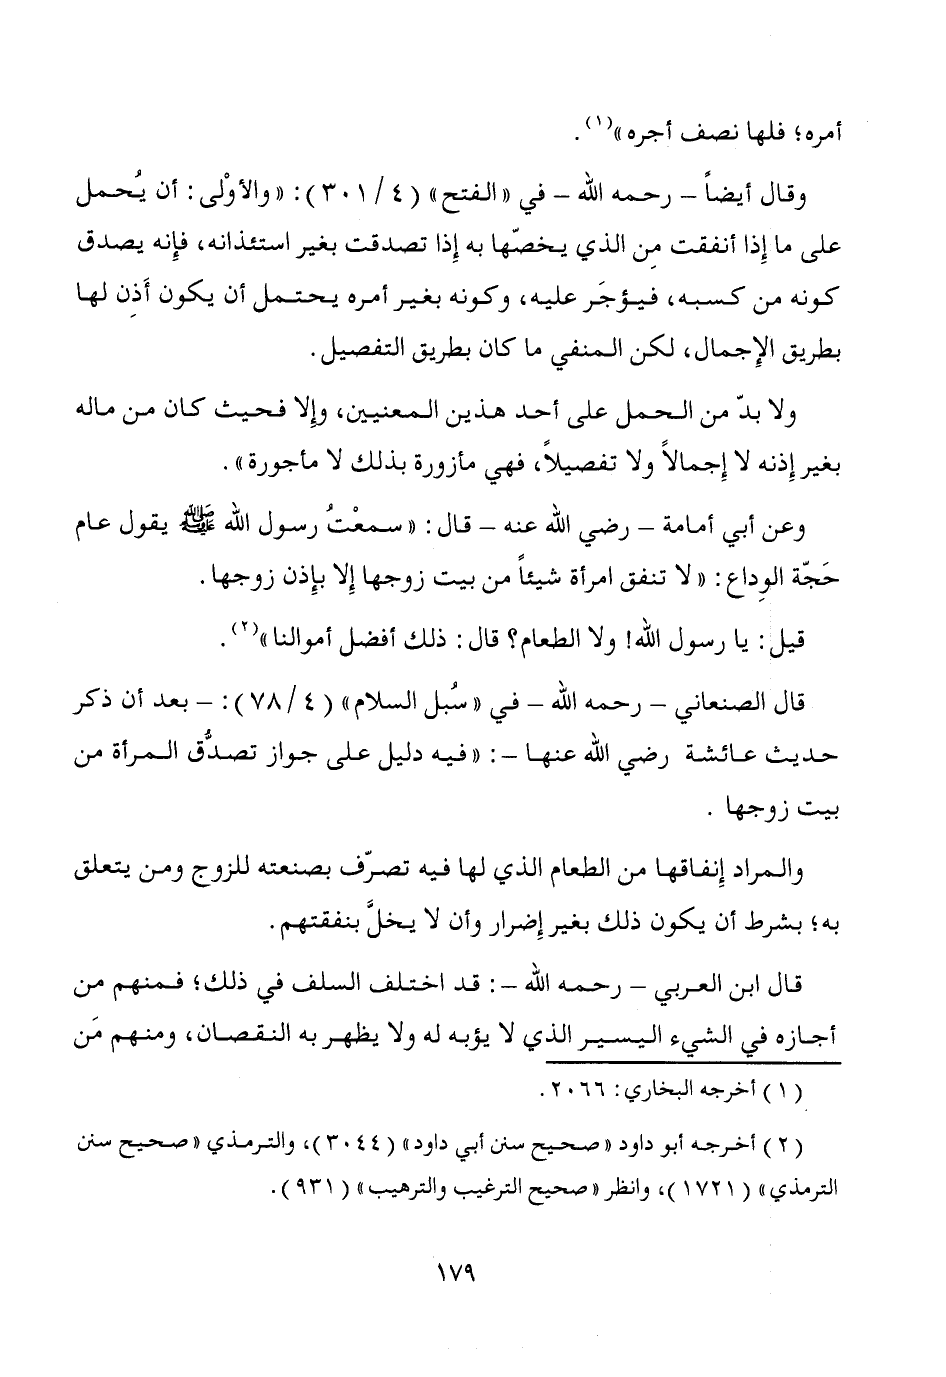 أمره؛ فلها نصف أجره»(١).
وقال أيضاً – رحمه الله – في «الفتح» (٤/ ٣٠١): «والأوْلى: أن يُحمل
على ما إذا أنفقت مِن الذي يخصّها به إذا تصدقت بغير استئذانه، فإِنه يصدق
كونه من كسبه، فيؤجَر عليه، وكونه بغير أمره يحتمل أن يكون أَذِن لها
بطريق الإِجمال، لكن المنفي ما كان بطريق التفصيل.
ولا بدّ من الحمل على أحد هذين المعنيين، وإِلا فحيث كان من ماله
بغير إِذنه لا إِجمالاً ولا تفصيلاً، فهي مأزورة بذلك لا مأجورة».
وعن أبي أمامة – رضي الله عنه – قال: «سمعْتُ رسول الله ﷺ يقول عام
حَجّة الوِداع: «لا تنفق امرأة شيئاً من بيت زوجها إِلا بإِذن زوجها.
قيل: يا رسول الله! ولا الطعام؟ قال: ذلك أفضل أموالنا»(٢).
قال الصنعاني – رحمه الله – في «سُبل السلام» (٤/ ٧٨): – بعد أن ذكر
حديث عائشة رضي الله عنها –: «فيه دليل على جواز تصدُّق المرأة من
بيت زوجها .
والمراد إِنفاقها من الطعام الذي لها فيه تصرّف بصنعته للزوج ومن يتعلق
به؛ بشرط أن يكون ذلك بغير إِضرار وأن لا يخلَّ بنفقتهم.
قال ابن العربي – رحمه الله –: قد اختلف السلف في ذلك؛ فمنهم من
أجازه في الشيء اليسير الذي لا يؤبه له ولا يظهر به النقصان، ومنهم مَن
(١) أخرجه البخاري: ٢٠٦٦.
(٢) أخرجه أبو داود «صحيح سنن أبي داود» (٣٠٤٤)، والترمذي «صحيح سنن
الترمذي» (١٧٢١)، وانظر «صحيح الترغيب والترهيب» (٩٣١).
١٧٩